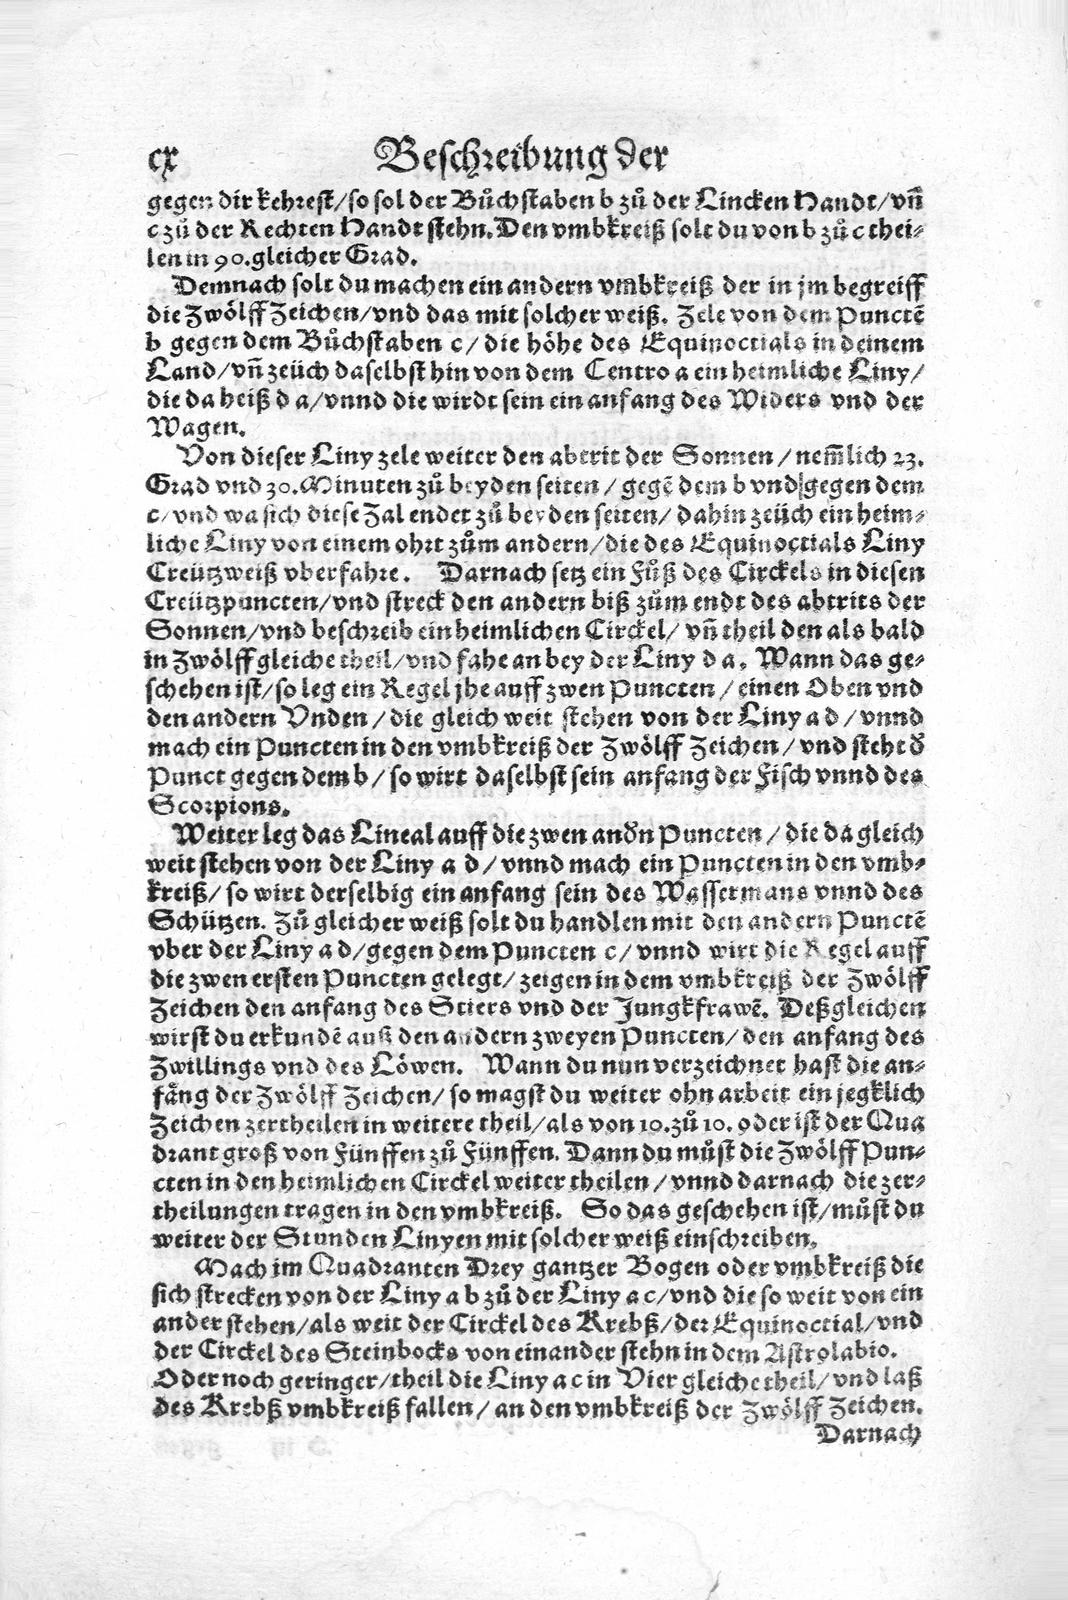 cx Beschreibung der
gegen dir kehrest/so sol der Bůchstaben b zů der Lincken Handt/vñ
c zů der Rechten Handt stehn. Den vmbkreiß solt du von b zů c thei-
len in 90. gleicher Grad.
Demnach solt du machen ein andern vmbkreiß der in jm begreiff
die Zwölff Zeichen/vnd das mit solcher weiß. Zele von dem Punctē
b gegen dem Bůchstaben c/ die höhe des Equinoctials in deinem
Land/vñ zeüch daselbst hin von dem Centro a ein heimliche Liny/
die da heiß d a/vnnd die wirdt sein ein anfang des Widers vnd der
Wagen.
Von dieser Liny zele weiter den abtrit der Sonnen/ nem̃lich 23.
Grad vnd 30. Minuten zů beyden seiten/ gegē dem b vnd gegen dem
c/vnd wa sich diese Zal endet zů beyden seiten/ dahin zeüch ein heim-
liche Liny von einem ohrt zům andern/die des Equinoctials Liny
Creützweiß vberfahre. Darnach setz ein Fůß des Circkels in diesen
Creützpuncten/vnd streck den andern biß zům endt des abtrits der
Sonnen/vnd beschreib ein heimlichen Circkel/ vñ theil den als bald
in Zwölff gleiche theil/vnd fahe an bey der Liny d a. Wann das ge-
schehen ist/so leg ein Regel jhe auff zwen Puncten/ einen Oben vnd
den andern Vnden/die gleich weit stehen von der Liny a d/vnnd
mach ein Puncten in den vmbkreiß der Zwölff Zeichen/vnd steht d̃
Punct gegen dem b/so wirt daselbst sein anfang der Fisch vnnd des
Scorpions.
Weiter leg das Lineal auff die zwen and̃n Puncten/die da gleich
weit stehen von der Liny a d/ vnnd mach ein Puncten in den vmb-
kreiß/ so wirt derselbig ein anfang sein des Wassermans vnnd des
Schützen. Zů gleicher weiß solt du handlen mit den andern Punctē
vber der Liny a d/gegen dem Puncten c/vnnd wirt die Regel auff
die zwen ersten Puncten gelegt/zeigen in dem vmbkreiß der Zwölff
Zeichen den anfang des Stiers vnd der Jungkfrawē. Deßgleichen
wirst du erkundē auß den andern zweyen Puncten/den anfang des
Zwillings vnd des Löwen. Wann du nun verzeichnet hast die an-
fäng der Zwölff Zeichen/ so magst du weiter ohn arbeit ein jegklich
Zeichen zertheilen in weitere theil/als von 10. zů 10. oder ist der Qua
drant groß von Fünffen zů Fünffen. Dann du můst die Zwölff Pun-
cten in den heimlichen Circkel weiter theilen/vnnd darnach die zer-
theilungen tragen in den vmbkreiß. So das geschehen ist/můst du
weiter der Stunden Linyen mit solcher weiß einschreiben.
Mach im Quadranten Drey gantzer Bogen oder vmbkreiß die
sich strecken von der Liny a b zů der Liny a c/vnd die so weit von ein
ander stehen/als weit der Circkel des Krebß/der Equinoctial/vnd
der Circkel des Steinbocks von einander stehn in dem Astrolabio.
Oder noch geringer/theil die Liny a c in Vier gleiche theil/vnd laß
des Krebß vmbkreiß fallen/an den vmbkreiß der Zwölff Zeichen.
Darnach